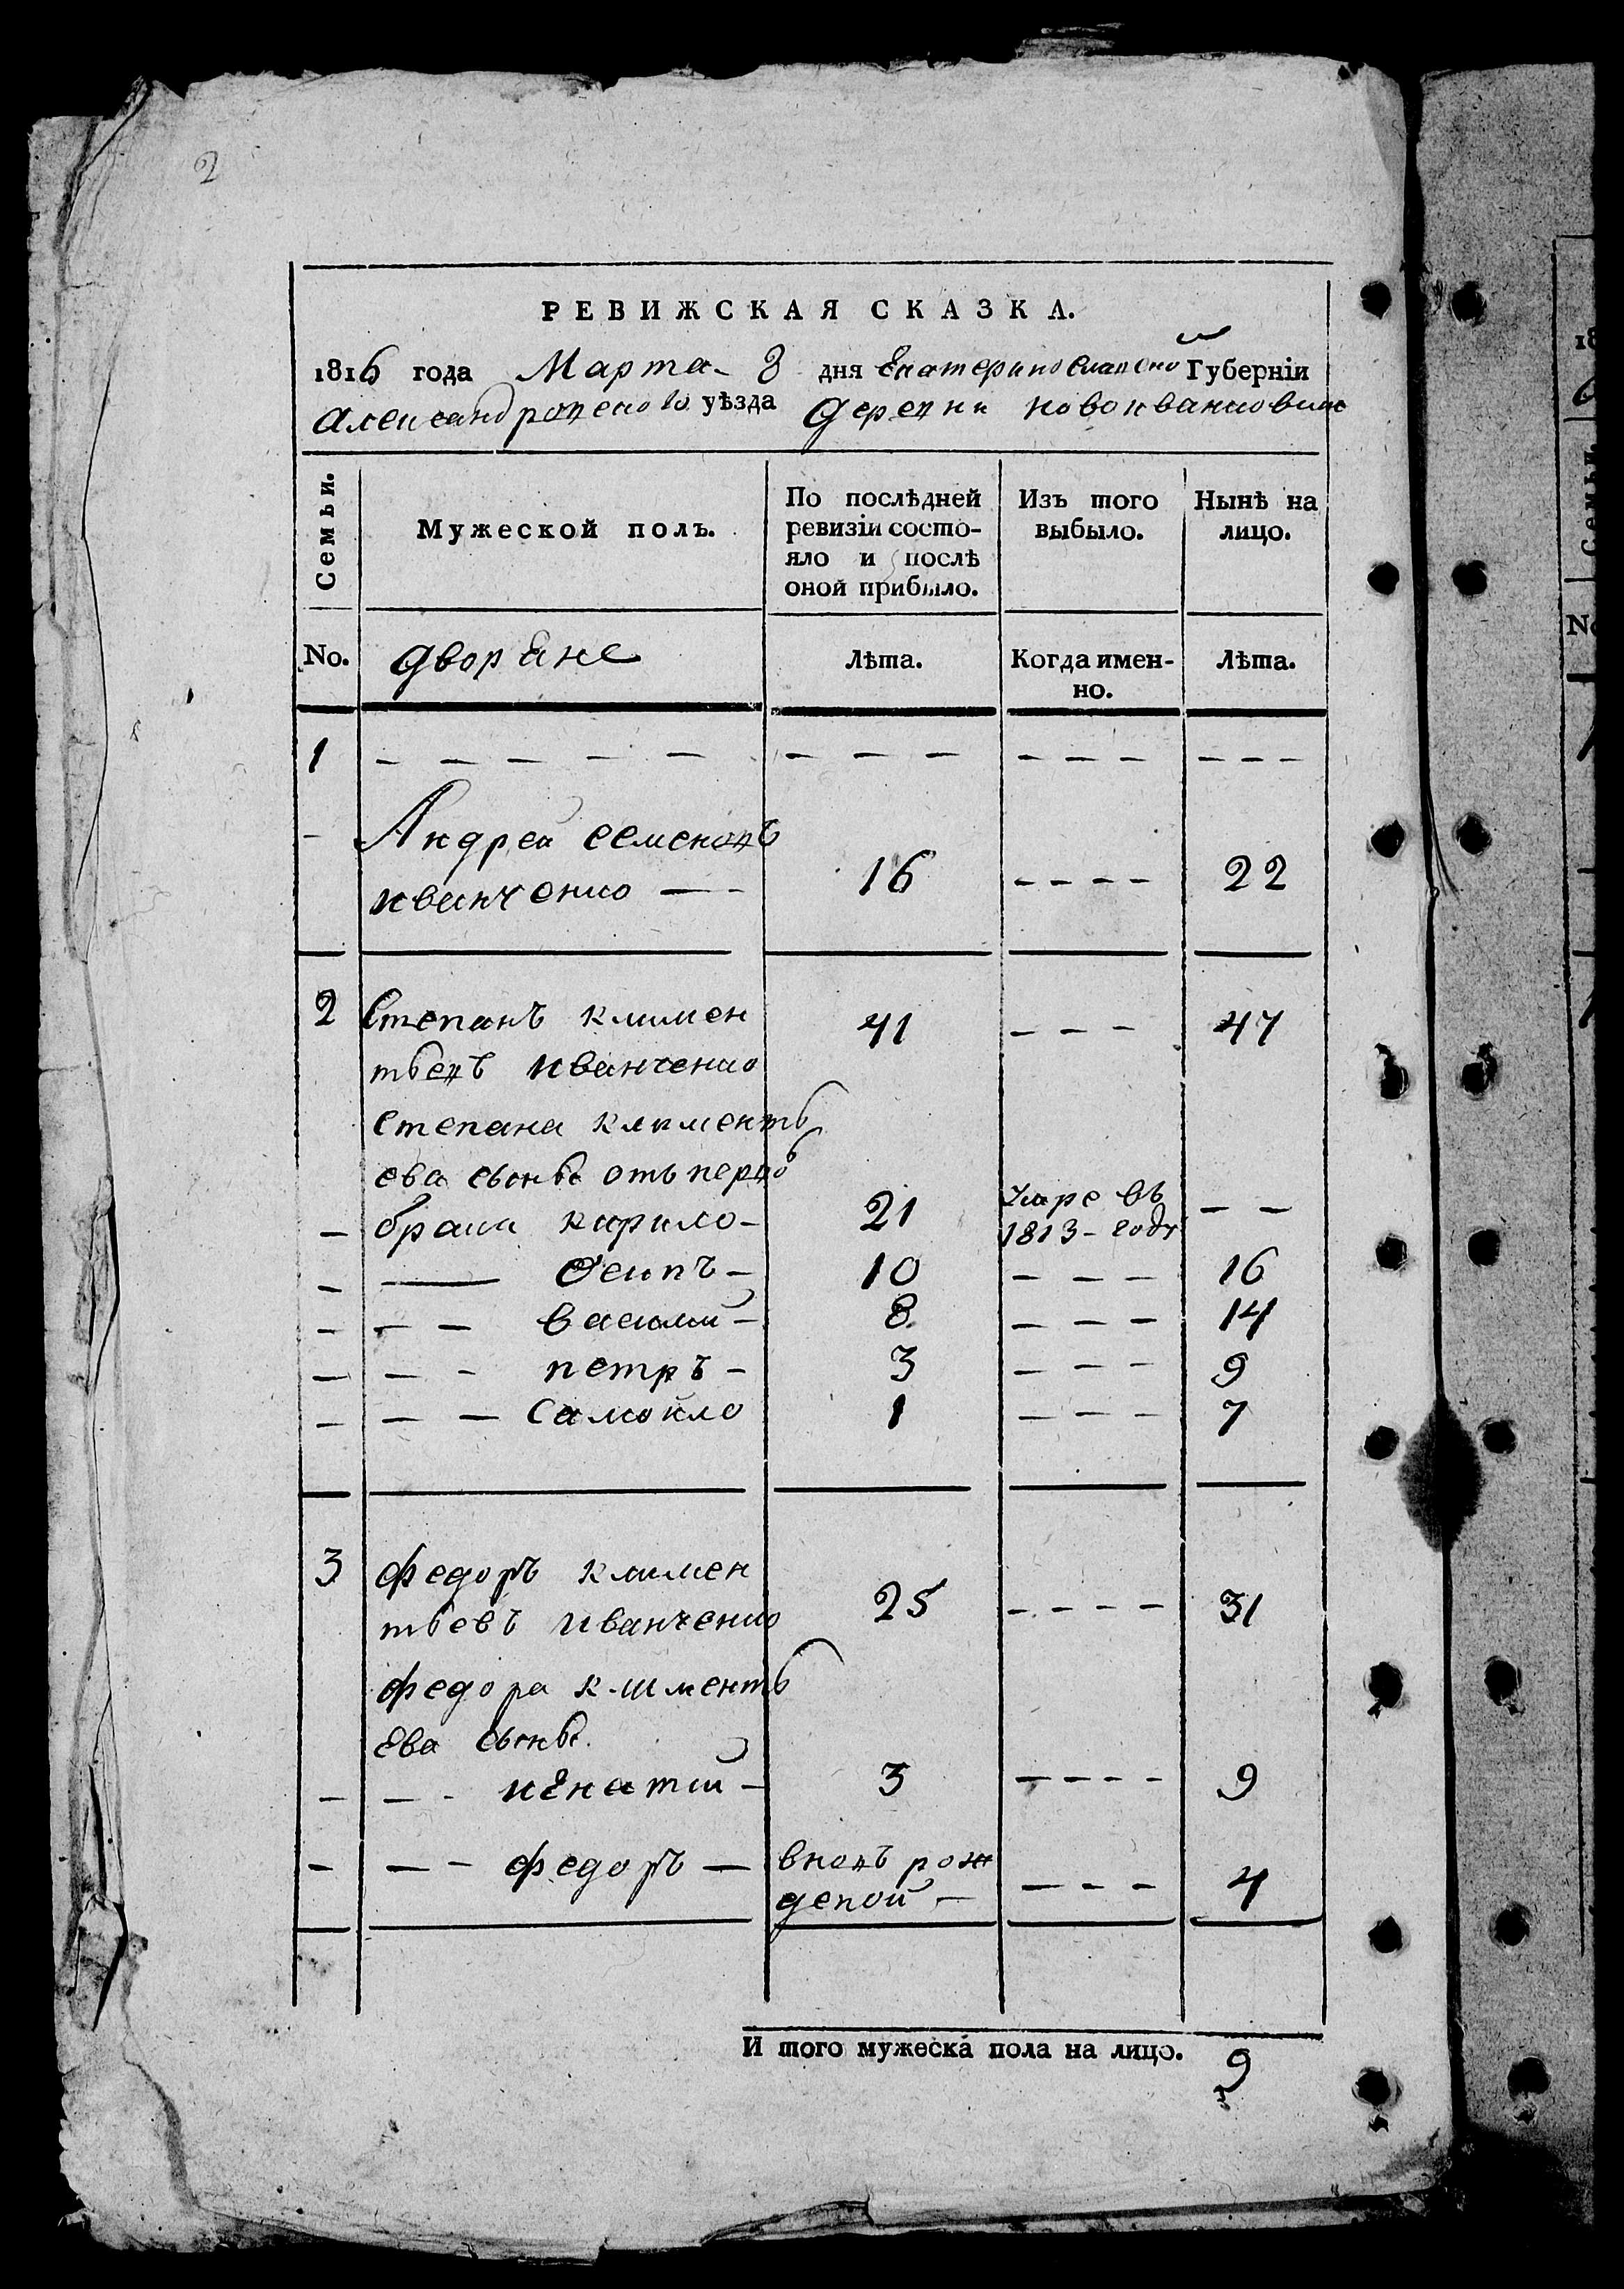 2
РЕВИЖСКАЯ СКАЗКА.
1816 года Марта 8 дня Екатеринославской Губерніи
Александровского уѣзда Деревни новоивановки
Семьи.
Мужеской полъ.
По послѣдней ревизіи состо-
яло и послѣ
оной прибыло.
Изъ того
выбыло.
Нынѣ на
лицо.
No. дворяне Лѣта. Когда имен-
но. Лѣта.
1 – – – – – – – – – – – – – –
– Андрей семеновъ
иванченко — 16 – – – – 22
2 Степанъ климен 41 – – – 47
тьевъ иванченко
степана клименть
ева сыны отъ перво
– брака кирило – 21 умре въ
1813 – году – –
– —— Осипъ – 10 – – – 16
– – – василий – 8 – – – 14
– – – петръ – 3 – – – 9
– – – Самойло 1 – – – 7
3 федоръ климен
тьевъ иванченко 25 – – – – 31
федора клименть
ева сыны
– – – игнатий – 3 – – – – 9
– – – федоръ — вновь рож
деной – – – – 4
И того мужеска пола на лицо. 9
18
Семьи.
No